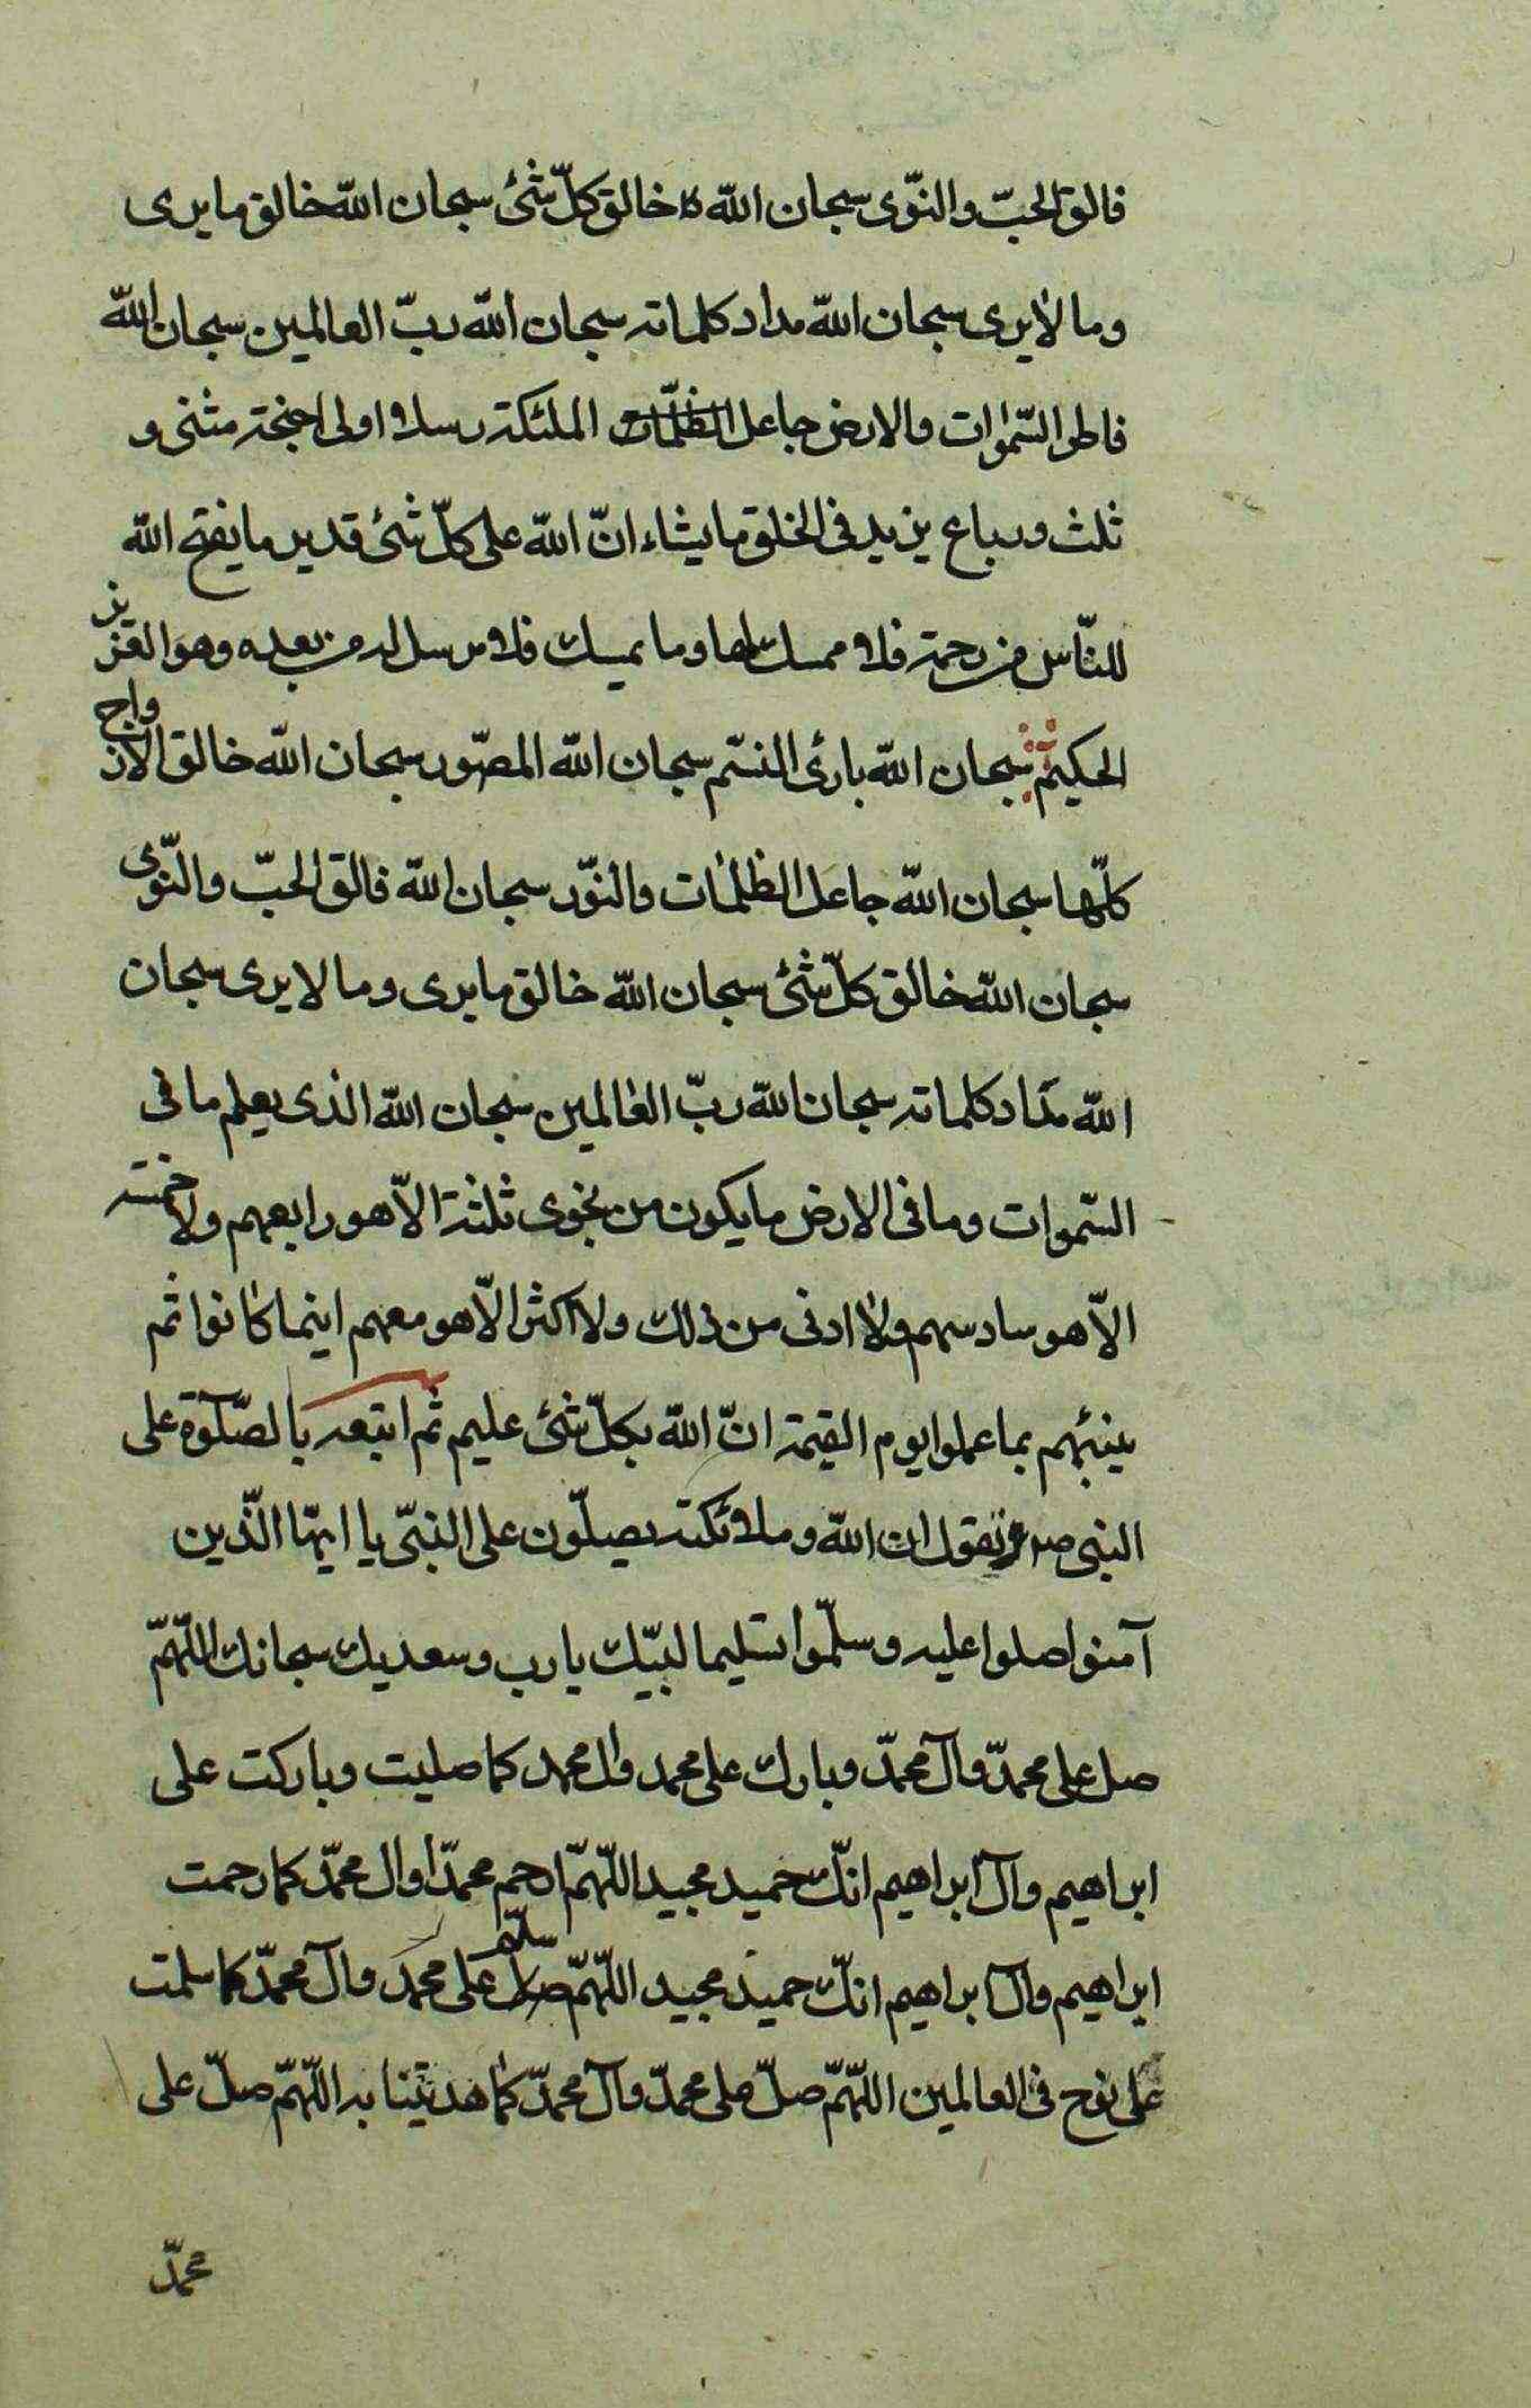 فالق الحبّ والنّوى سبحان الله خالق كلّ شئ سبحان الله خالق ما يرى
وما لا يرى سبحان الله مداد كلماته سبحان الله ربّ العالمين سبحان الله
فاطر السّموات والارض جاعل الظلمات الملئكة رسلا اولى اجنحة مثنى و
ثلث ورباع يزيد فى الخلق ما يشاء انّ الله على كلّ شئ قدير ما يفتح الله
للنّاس من رحمة فلا ممسك لها وما يمسك فلا مرسل له من بعده وهو العزيز
الحكيم سبحان الله بارئ النسم سبحان الله المصّور سبحان الله خالق الازواج
كلّها سبحان الله جاعل الظلمات والنّور سبحان الله فالق الحبّ والنّوى
سبحان الله خالق كلّ شئ سبحان الله خالق ما يرى وما لا يرى سبحان
الله مداد كلماته سبحان الله ربّ العالمين سبحان الله الذى يعلم ما فى
السّموات وما فى الارض ما يكون من نجوى ثلثة الاّ هو رابعهم ولا خمسة
الاّ هو سادسهم ولا ادنى من ذلك ولا اكثر الاّ هو معهم اينما كانوا ثم
ينبئهم بما عملوا يوم القيمة انّ الله بكلّ شئ عليم ثم اتبعه بالصّلوة على
النبى ص فتقول ان الله وملائكته يصلّون على النبّى يا ايهّا الّذين
آمنوا صلوا عليه وسلّموا تسليما لبيّك يا رب وسعديك سبحانك اللّهمّ
صل على محمدّ وآل محمدّ وبارك على محمد وال محمد كما صليت وباركت على
ابراهيم وآل ابراهيم انّك حميد مجيد اللّهمّ ارحم محمدّا وال محمدّ كما رحمت
ابراهيم وآل ابراهيم انّك حميد مجيد اللّهمّ سلّم على محمد وآل محمدّ كما سلمت
على نوح فى العالمين اللّهمّ صلّ على محمدّ وآل محمدّ كما هديتنا به اللّهمّ صلّ على
محمدّ